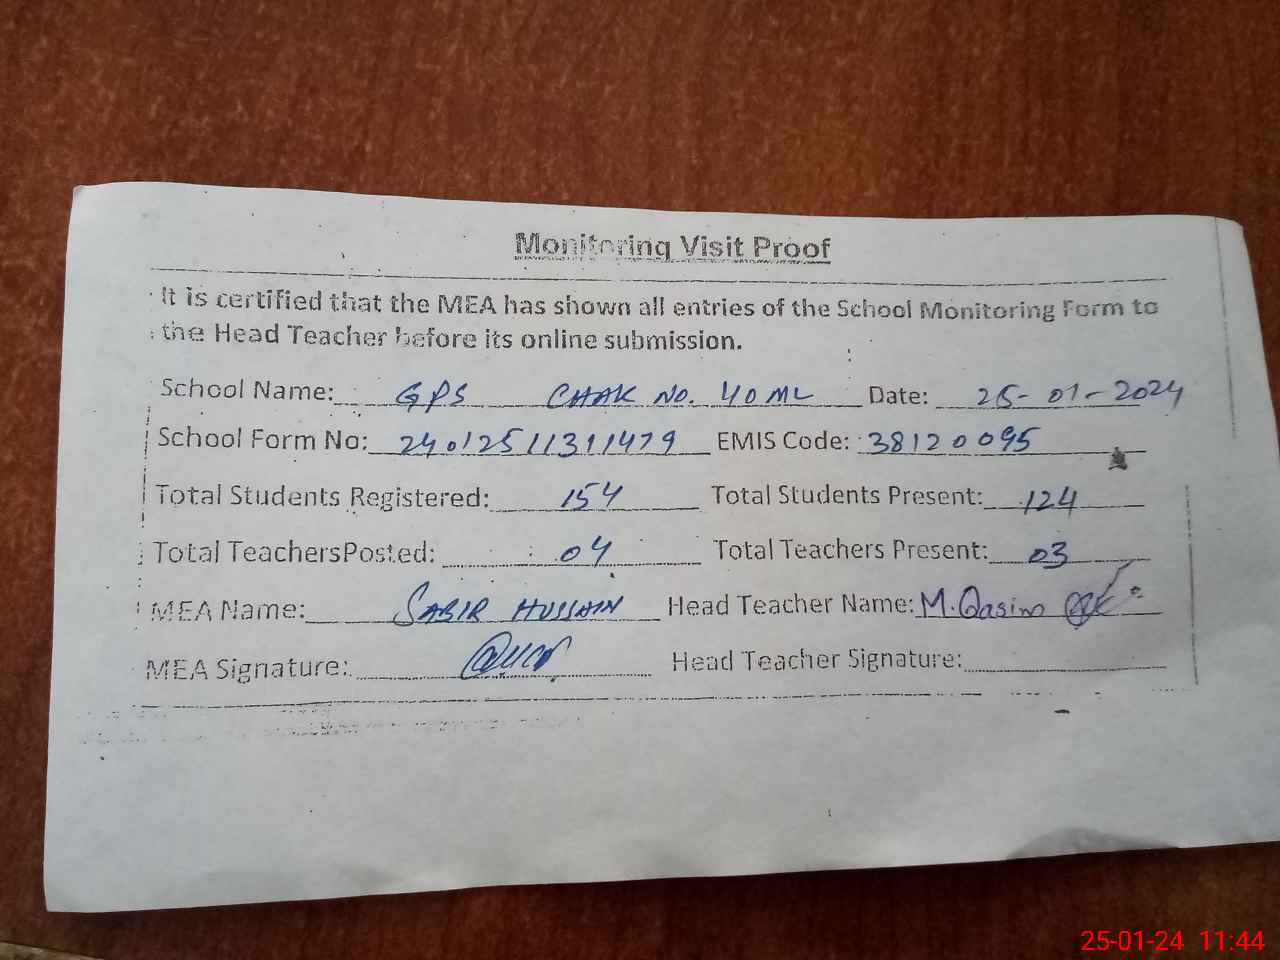 Monitoring Visit Proof
It is certified that the MEA has shown all entries of the School Monitoring Form to
the Head Teacher before its online submission.
School Name: GPS CHAK NO. 40 ML Date: 25-01-2024
School Form No: 24012511311479 EMIS Code: 38120095
Total Students Registered: 154 Total Students Present: 124
Total TeachersPosted: 04 Total Teachers Present: 03
MEA Name: SABIR HUSSAIN Head Teacher Name: M.Qasim
MEA Signature: Head Teacher Signature:
25-01-24 11:44